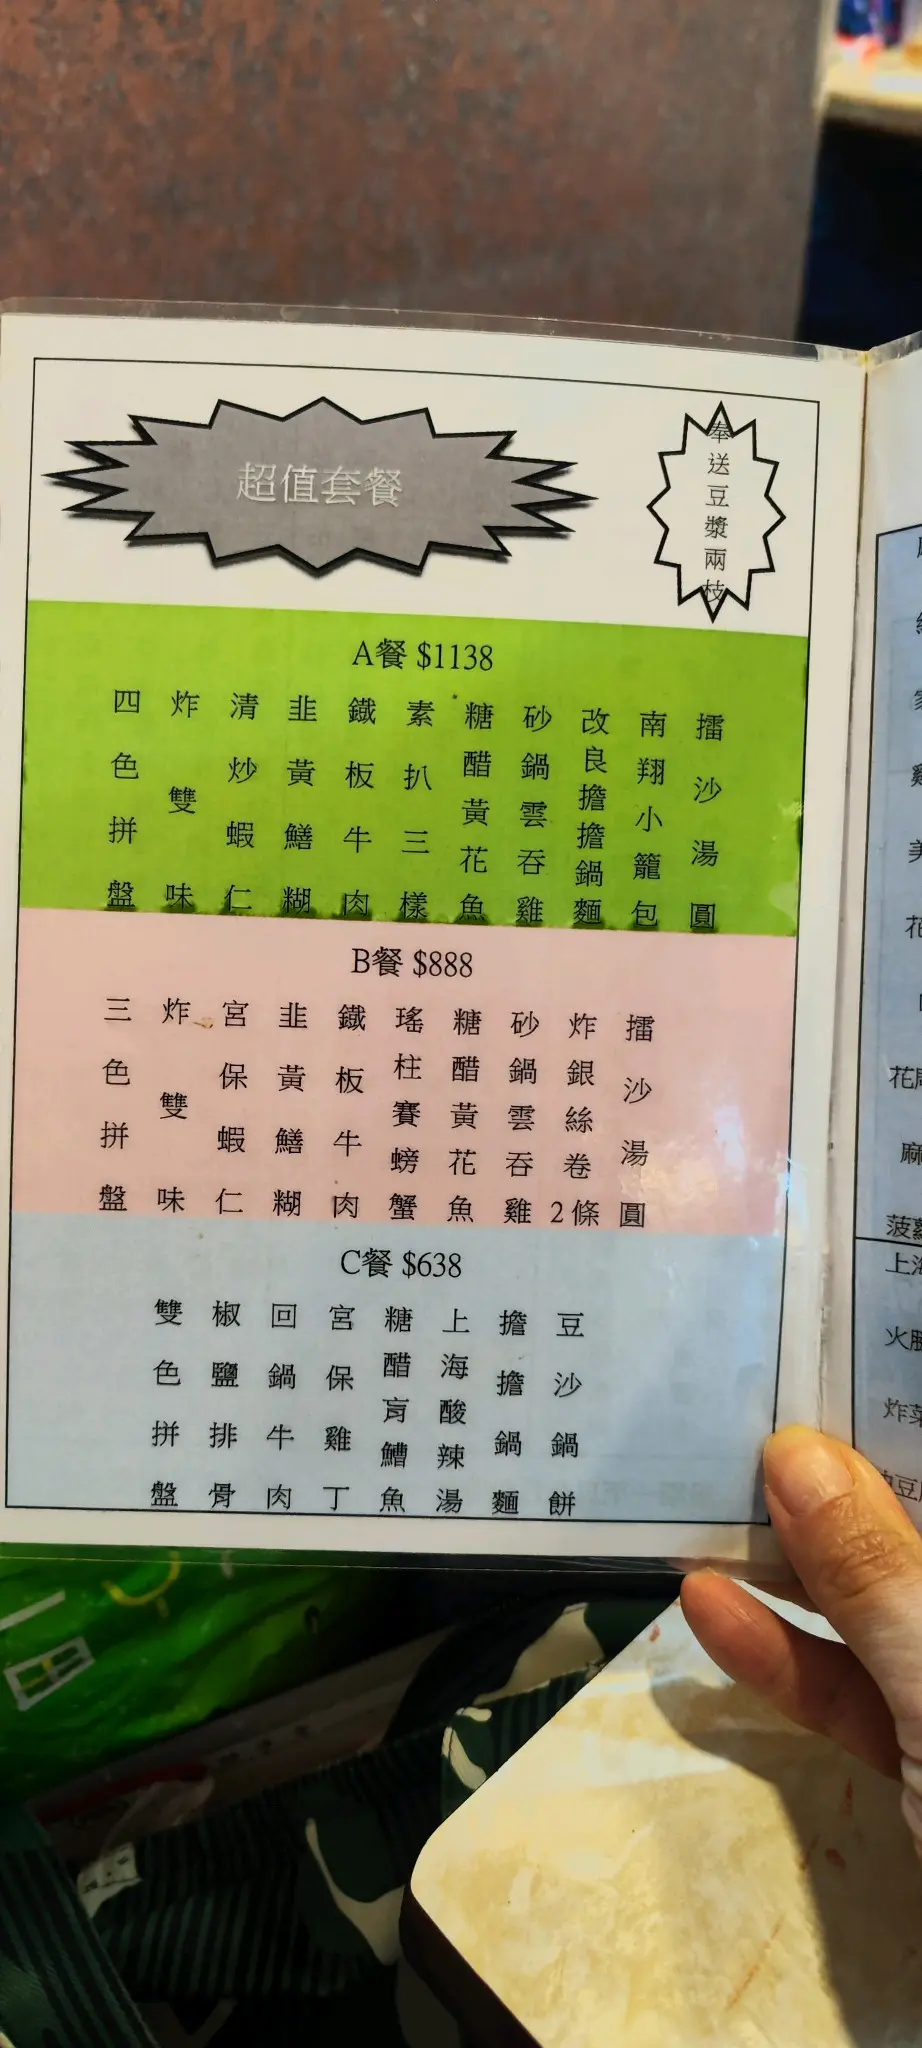 超值套餐
奉送豆漿兩枝
A餐 $1138
四色拼盤
炸雙味
清炒蝦仁
韭黃鱔糊
鐵板牛肉
素扒三樣
糖醋黃花魚
砂鍋雲吞雞
改良擔擔鍋麵
南翔小籠包
擂沙湯圓
B餐 $888
三色拼盤
炸雙味
宮保蝦仁
韭黃鱔糊
鐵板牛肉
瑤柱賽螃蟹
糖醋黃花魚
砂鍋雲吞雞
炸銀絲卷2條
擂沙湯圓
C餐 $638
雙色拼盤
椒鹽排骨
回鍋牛肉
宮保雞丁
糖醋肓鰽魚
上海酸辣湯
擔擔鍋麵
豆沙鍋餅
花
麻
菠
上海
火
炸菜